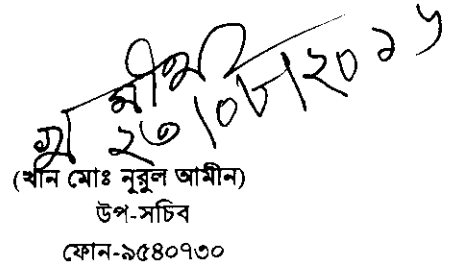 ২৩/০৮/২০১৬
(খান মোঃ নূরুল আমীন)
উপ-সচিব
ফোন-৯৫৪০৭৩০